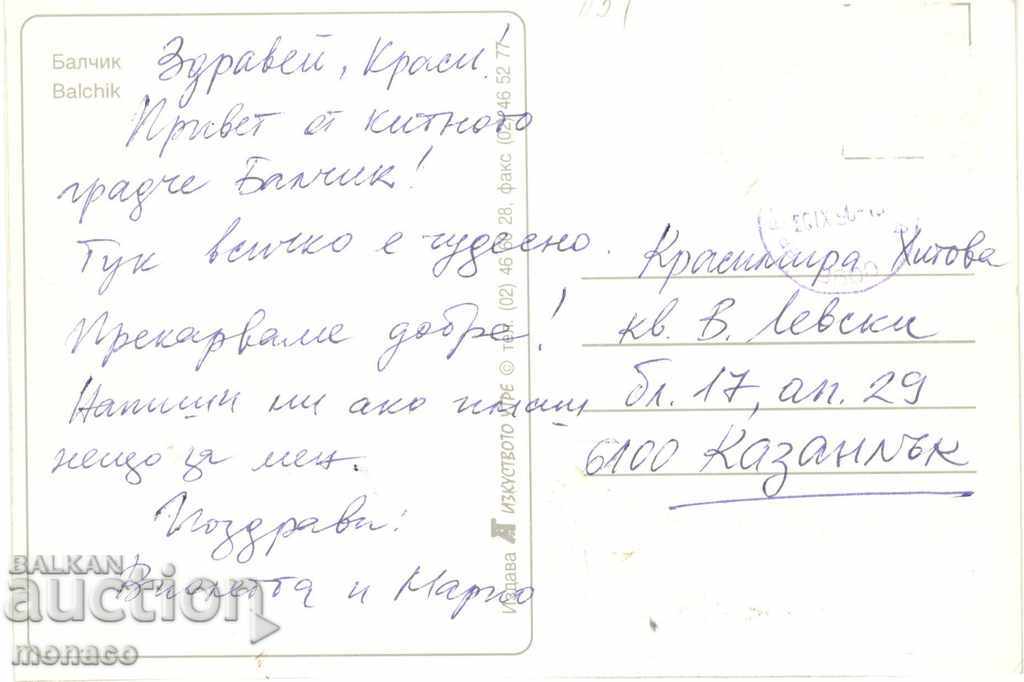 Балчик
Balchik
Здравей, Краси!
Привет от китното
градче Балчик!
Тук всичко е чудесно.
Прекарваме добре!
Напиши ми ако имаш
нещо за мен.
Поздрави:
Виолетта и Марго
Издава ИЗКУСТВОТО УТРЕ © тел. (02) 46 28, факс (02) 46 52 77
Красимира Хитова
кв. В. Левски
бл. 17, ап. 29
6100 Казанлък
BALKAN
auction
monaco